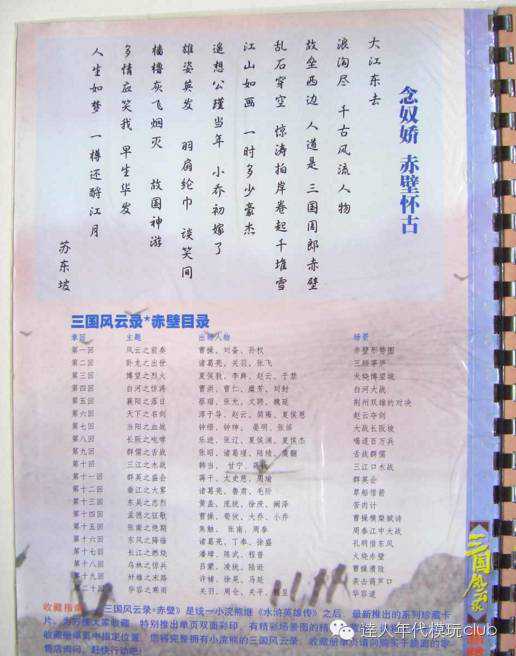 念奴娇 赤壁怀古
大江东去
浪淘尽 千古风流人物
故垒西边 人道是 三国周郎赤壁
乱石穿空 惊涛拍岸卷起千堆雪
江山如画 一时多少豪杰
遥想公瑾当年 小乔初嫁了
雄姿英发 羽扇纶巾 谈笑间
樯橹灰飞烟灭 故国神游
多情应笑我 早生华发
人生如梦 一樽还酹江月
苏东坡
三国风云录*赤壁目录
章回 主题 出场人物 场景
第一回 风云之前奏 曹操、刘备、孙权 赤壁形势图
第二回 卧龙之出世 诸葛亮、关羽、张飞 三顾茅庐
第三回 博望之烈火 夏侯惇、李典、赵云、于禁 火烧博望坡
第四回 白河之惊涛 曹洪、曹仁、糜芳、刘封 白河大战
第五回 襄阳之落日 蔡瑁、张允、文聘、魏延 荆州双雄的对决
第六回 天下之名剑 淳于导、赵云、简雍、夏侯恩 赵云夺剑
第七回 当阳之血战 钟缙、钟绅、晏明、张郃 大战长坂坡
第八回 长坂之咆哮 乐进、张辽、夏侯渊、夏侯杰 喝退百万兵
第九回 群儒之舌战 张昭、诸葛瑾、陆绩、虞翻 舌战群儒
第十回 三江之水战 韩当、甘宁、蒋钦 三江口水战
第十一回 群英之盛会 蒋干、太史慈、周瑜 群英会
第十二回 秦江之大雾 诸葛亮、鲁肃、毛玠 草船借箭
第十三回 东吴之忠烈 黄盖、庞统、徐庶、阚泽 苦肉计
第十四回 孟德之狂歌 曹操、荀攸、大乔、小乔 曹操横槊赋诗
第十五回 张南之绝期 焦触、张南、周泰 周泰江中大战
第十六回 东风之降临 诸葛亮、丁奉、徐盛 孔明借东风
第十七回 长江之燃烧 潘璋、陈武、程普 火烧赤壁
第十八回 乌林之惊兵 吕蒙、凌统、陆逊 曹操溃败
第十九回 叶峰之末路 许褚、徐晃、马延 袭击葫芦口
第二十回 华容之释曹 关羽、周仓、关平、魏延 华容道
收藏指南：《三国风云录·赤壁》是统一小浣熊继《水浒英雄传》之后，最新推出的系列珍藏卡
片，为方便大家收藏，特别推出单页双面彩印，有精彩场景图的精
收藏册单页中指定位置，您将完整拥有小浣熊的三国风云录。收藏册单页请向购买干脆面的零
售店询问，赶快行动吧！
三国风云录
达人年代模玩club